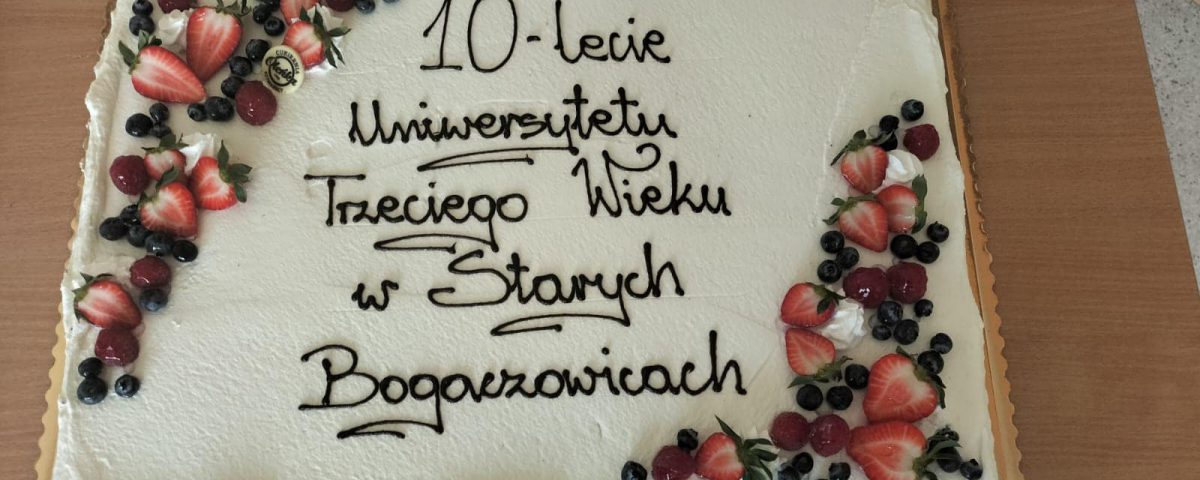 10-lecie
Uniwersytetu
Trzeciego Wieku
w Starych
Bogaczowicach
CUKIERNIA